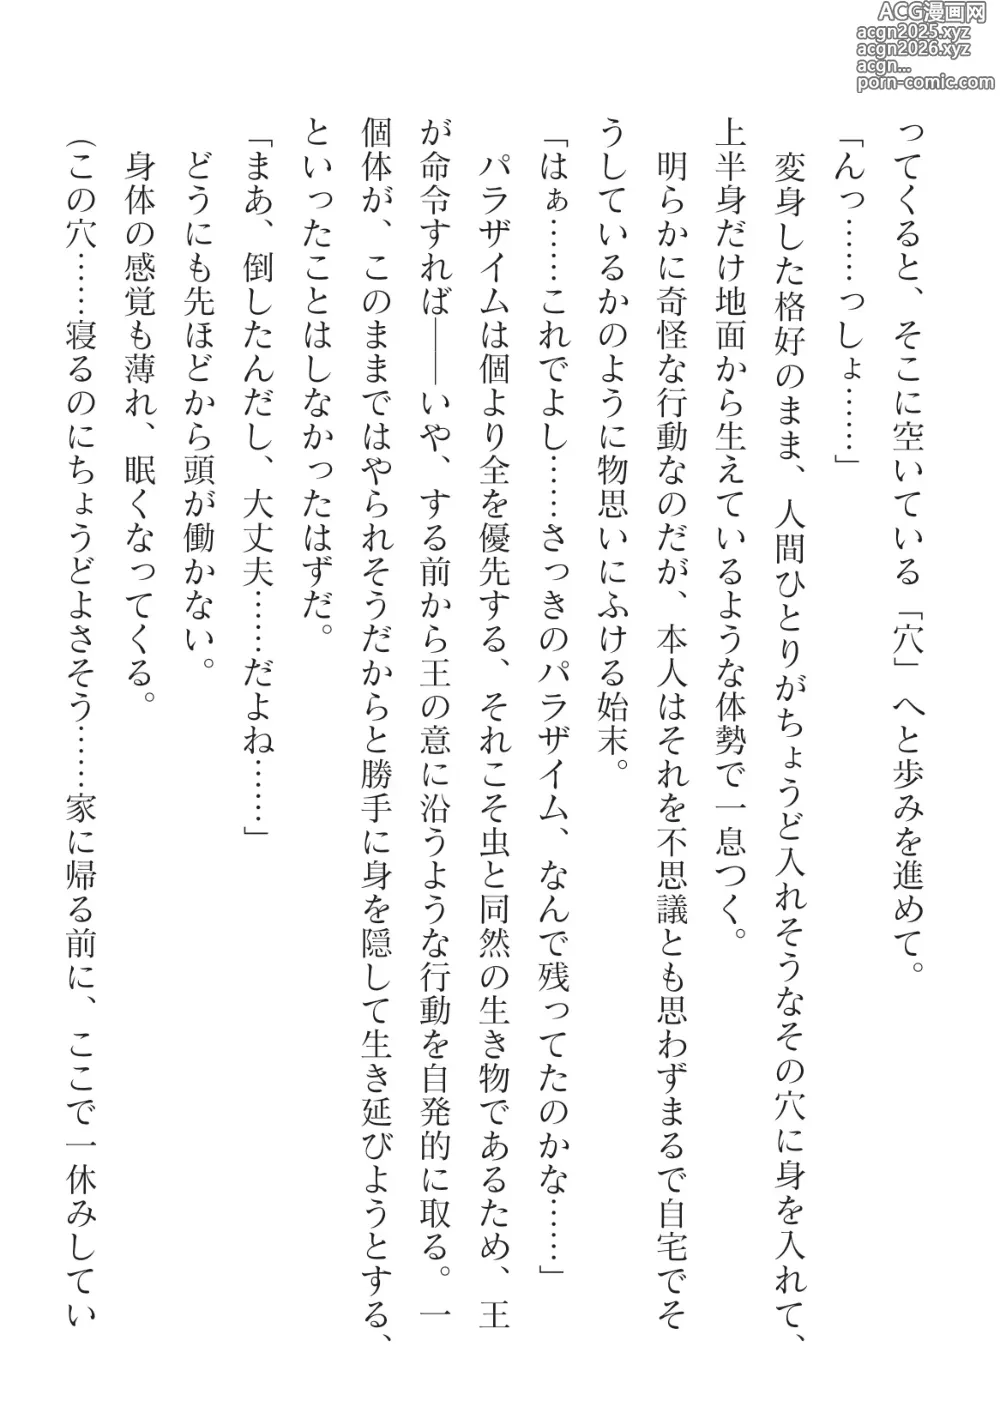 ACG漫画网
acgn2025.xyz
acgn2026.xyz
acgn...
porn-comic.com
ってくると、そこに空いている「穴」へと歩みを進めて。
「んっ……っしょ……」
変身した格好のまま、人間ひとりがちょうど入れそうなその穴に身を入れて、
上半身だけ地面から生えているような体勢で一息つく。
明らかに奇怪な行動なのだが、本人はそれを不思議とも思わずまるで自宅でそ
うしているかのように物思いにふける始末。
「はぁ……これでよし……さっきのパラザイム、なんで残ってたのかな……」
パラザイムは個より全を優先する、それこそ虫と同然の生き物であるため、王
が命令すれば――いや、する前から王の意に沿うような行動を自発的に取る。一
個体が、このままではやられそうだからと勝手に身を隠して生き延びようとする、
といったことはしなかったはずだ。
「まあ、倒したんだし、大丈夫……だよね……」
どうにも先ほどから頭が働かない。
身体の感覚も薄れ、眠くなってくる。
（この穴……寝るのにちょうどよさそう……家に帰る前に、ここで一休みしてい